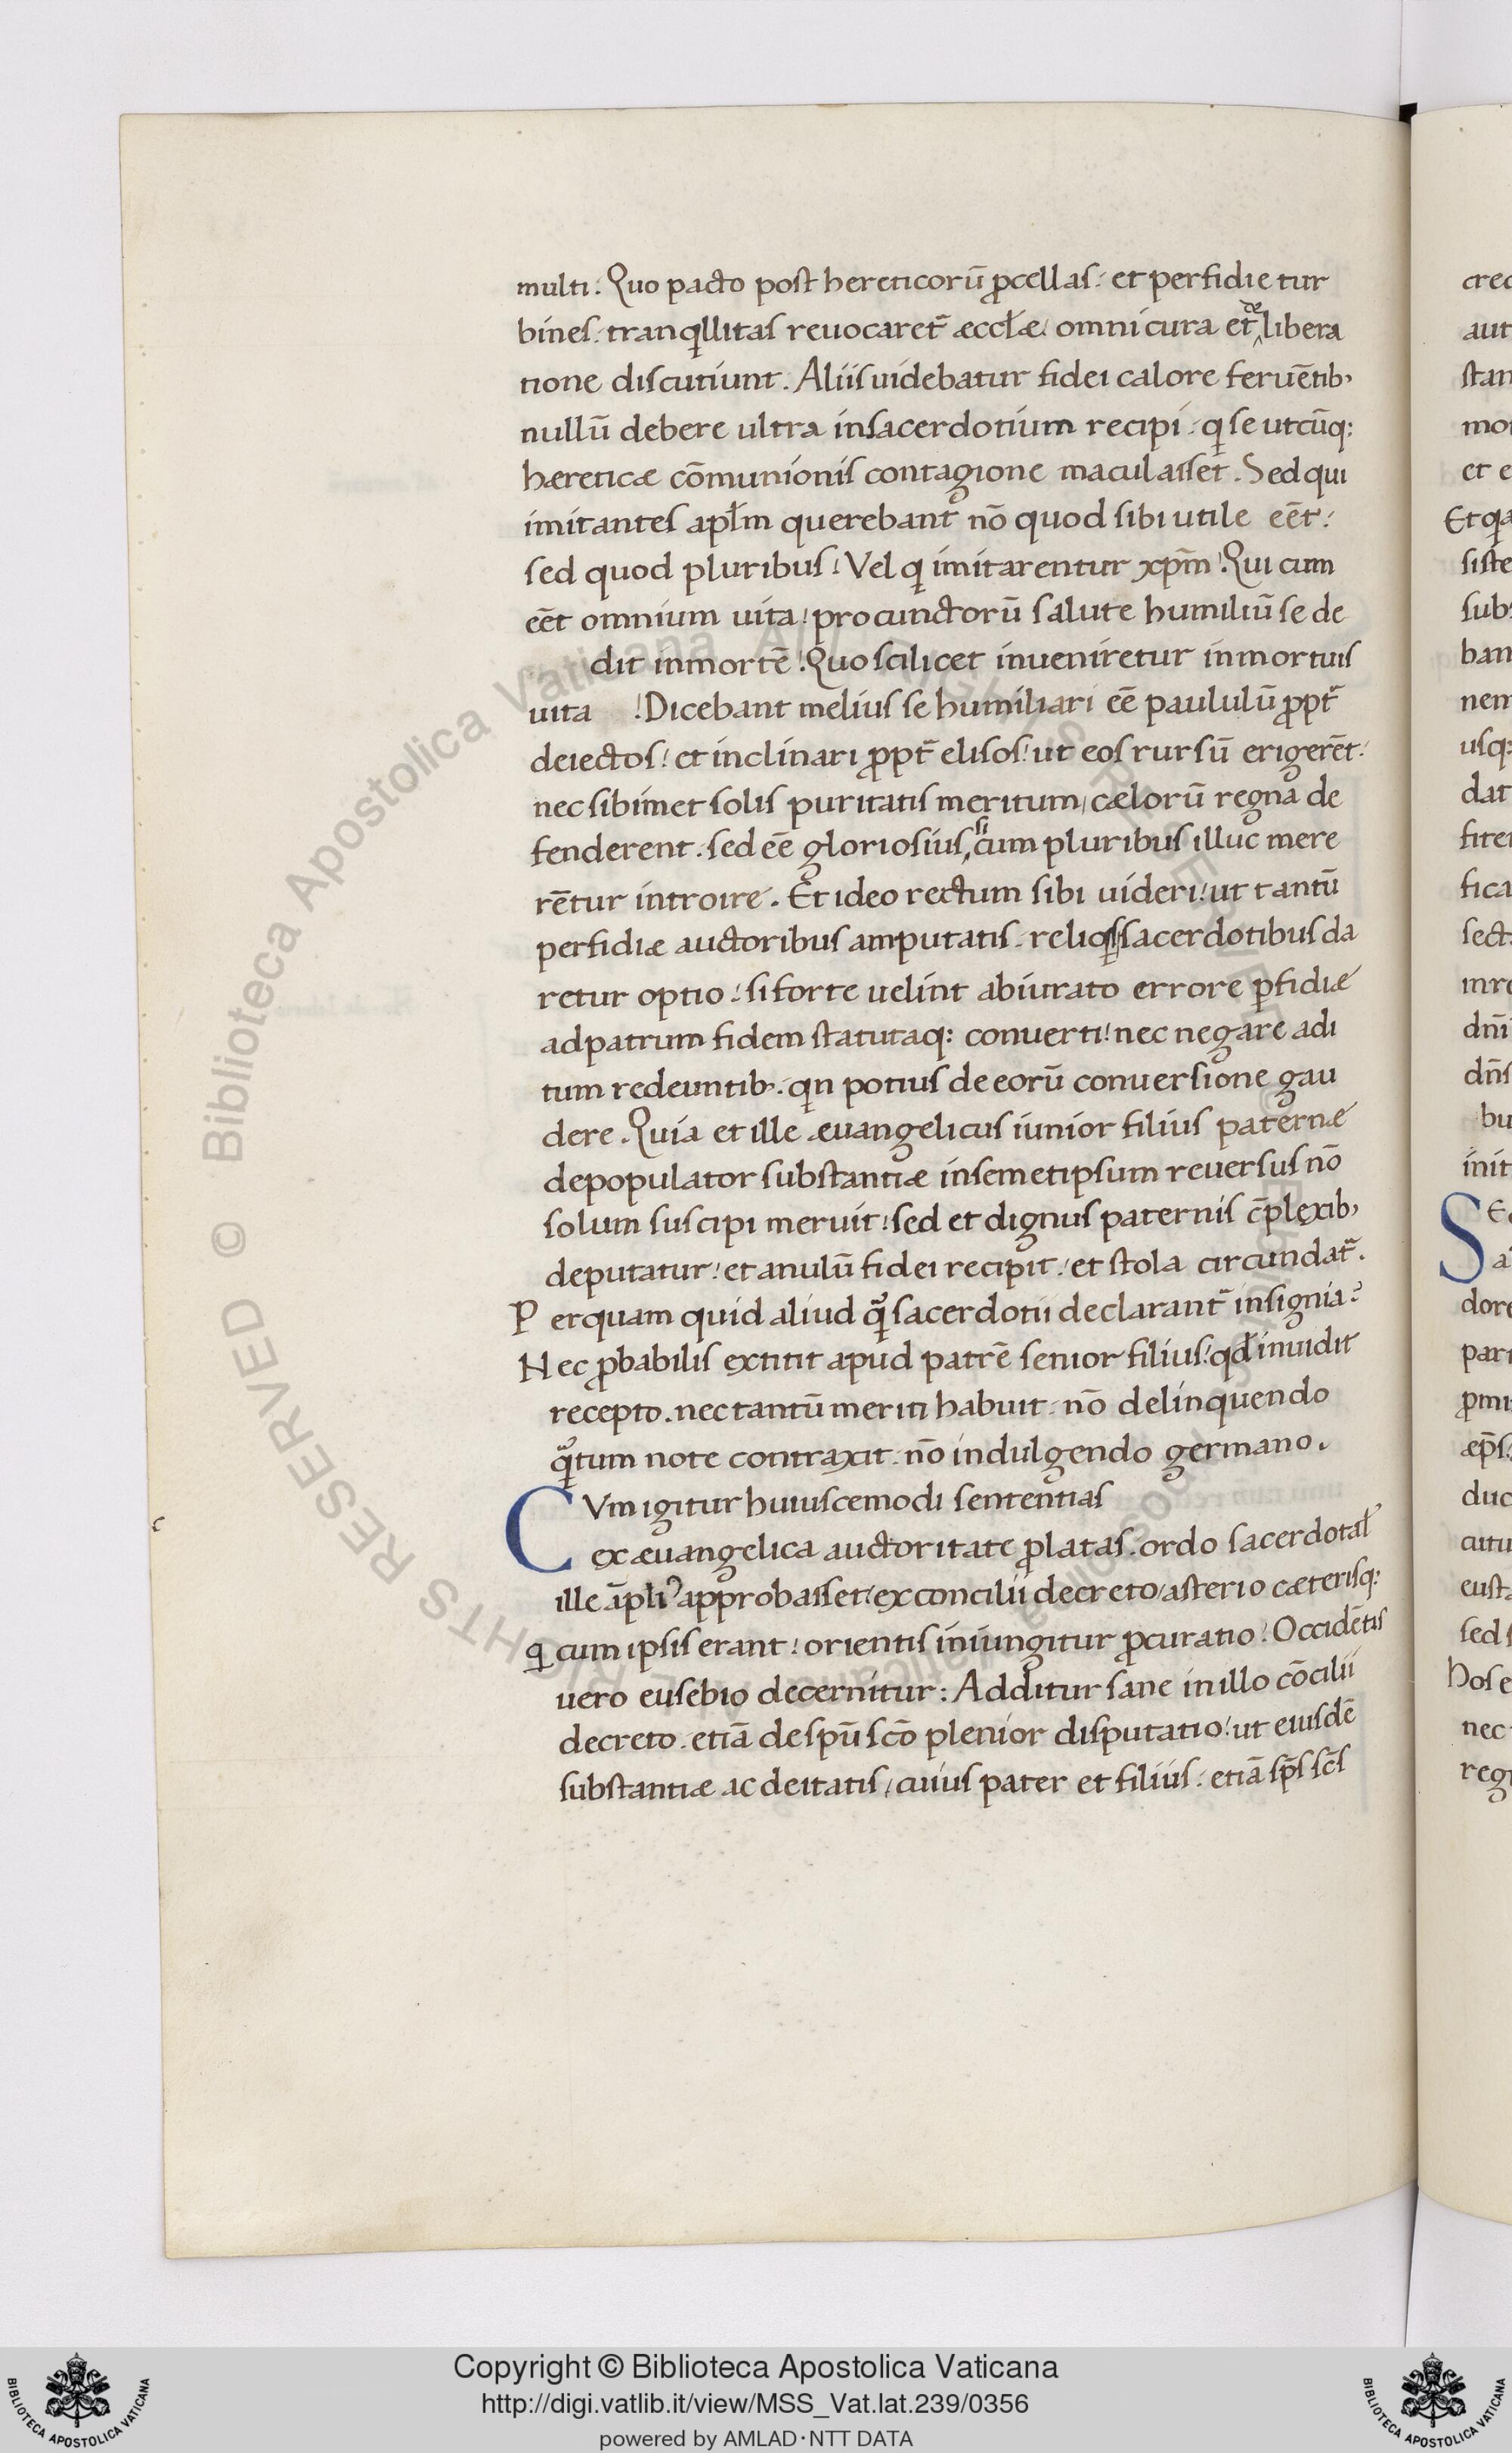 multi. Quo pacto post hereticorū ꝓcellas. et perfidie tur
bines. tranqͥllitas reuocaret᷑ æccl̄æ. omni cura et ‸de libera
tione discutiunt. Aliis uidebatur fidei calore feruētib;
nullū debere ultra insacerdotium recipi. qͥ se utcūq:
hæreticæ cōmunionis contagione maculaisset. Sed qui
imitantes apl̄m querebant᷑ nō quod sibi utile eēt.
sed quod pluribus! Vel qͥ imitarentur xp̄m! Qui cum
eēt omnium uita! pro cunctorū salute humiliū se de
dit inmortē! Quo scilicet inueniretur inmortuis
uita ! Dicebant melius se humiliari eē paululū ꝓpt᷑
deiectos! et inclinari ꝓpt᷑ elisos! ut eos rursū erigerēt.
nec sibimet solis puritatis meritum, cælorū regna de
fenderent. sed eē gloriosius, si cum pluribus illuc mere
rētur introire. Et ideo rectum sibi uideri! ut tantū
perfidiæ auctoribus amputatis. reliqͥs sacerdotibus da
retur optio! si forte uelint abiurato errore ꝑfidiæ
adpatrum fidem statutaq: conuerti! nec negare adi
tum redeuntib;. qͥn potius de eorū conuersione gau
dere. Quia et ille æuangelicus iunior filius paternæ
depopulator substantiæ insemetipsum reuersus nō
solum suscipi meruit! sed et dignus paternis c̄plexib;
deputatur! et anulū fidei recipit! et stola circundat᷑.
Perquam quid aliud qͣ̄ sacerdotii declarant᷑ insignia?
Nec ꝓbabilis extitit apud patrē senior filius! qđ inuidit
recepto. nec tantū meriti habuit. nō delinquendo
qͣ̄tum note contraxit. nō indulgendo germano.
c
CVm igitur huiuscemodi sententias
ex æuangelica auctoritate ꝓlatas. ordo sacerdotal̄
ille āpliꝰ approbaisset! ex concilii decreto, asterio cæterisq:
qͥ cum ipsis erant! orientis iniungitur ꝓcuratio! Occidētis
uero eusebio decernitur: Additur sane in illo cōcilii
decreto. etiā de spū scō plenior disputatio! ut eiusdē
substantiæ ac deitatis, cuius pater et filius! etiā sp̄s sc̄s
Copyright © Biblioteca Apostolica Vaticana
http://digi.vatlib.it/view/MSS_Vat.lat.239/0356
powered by AMLAD·NTT DATA